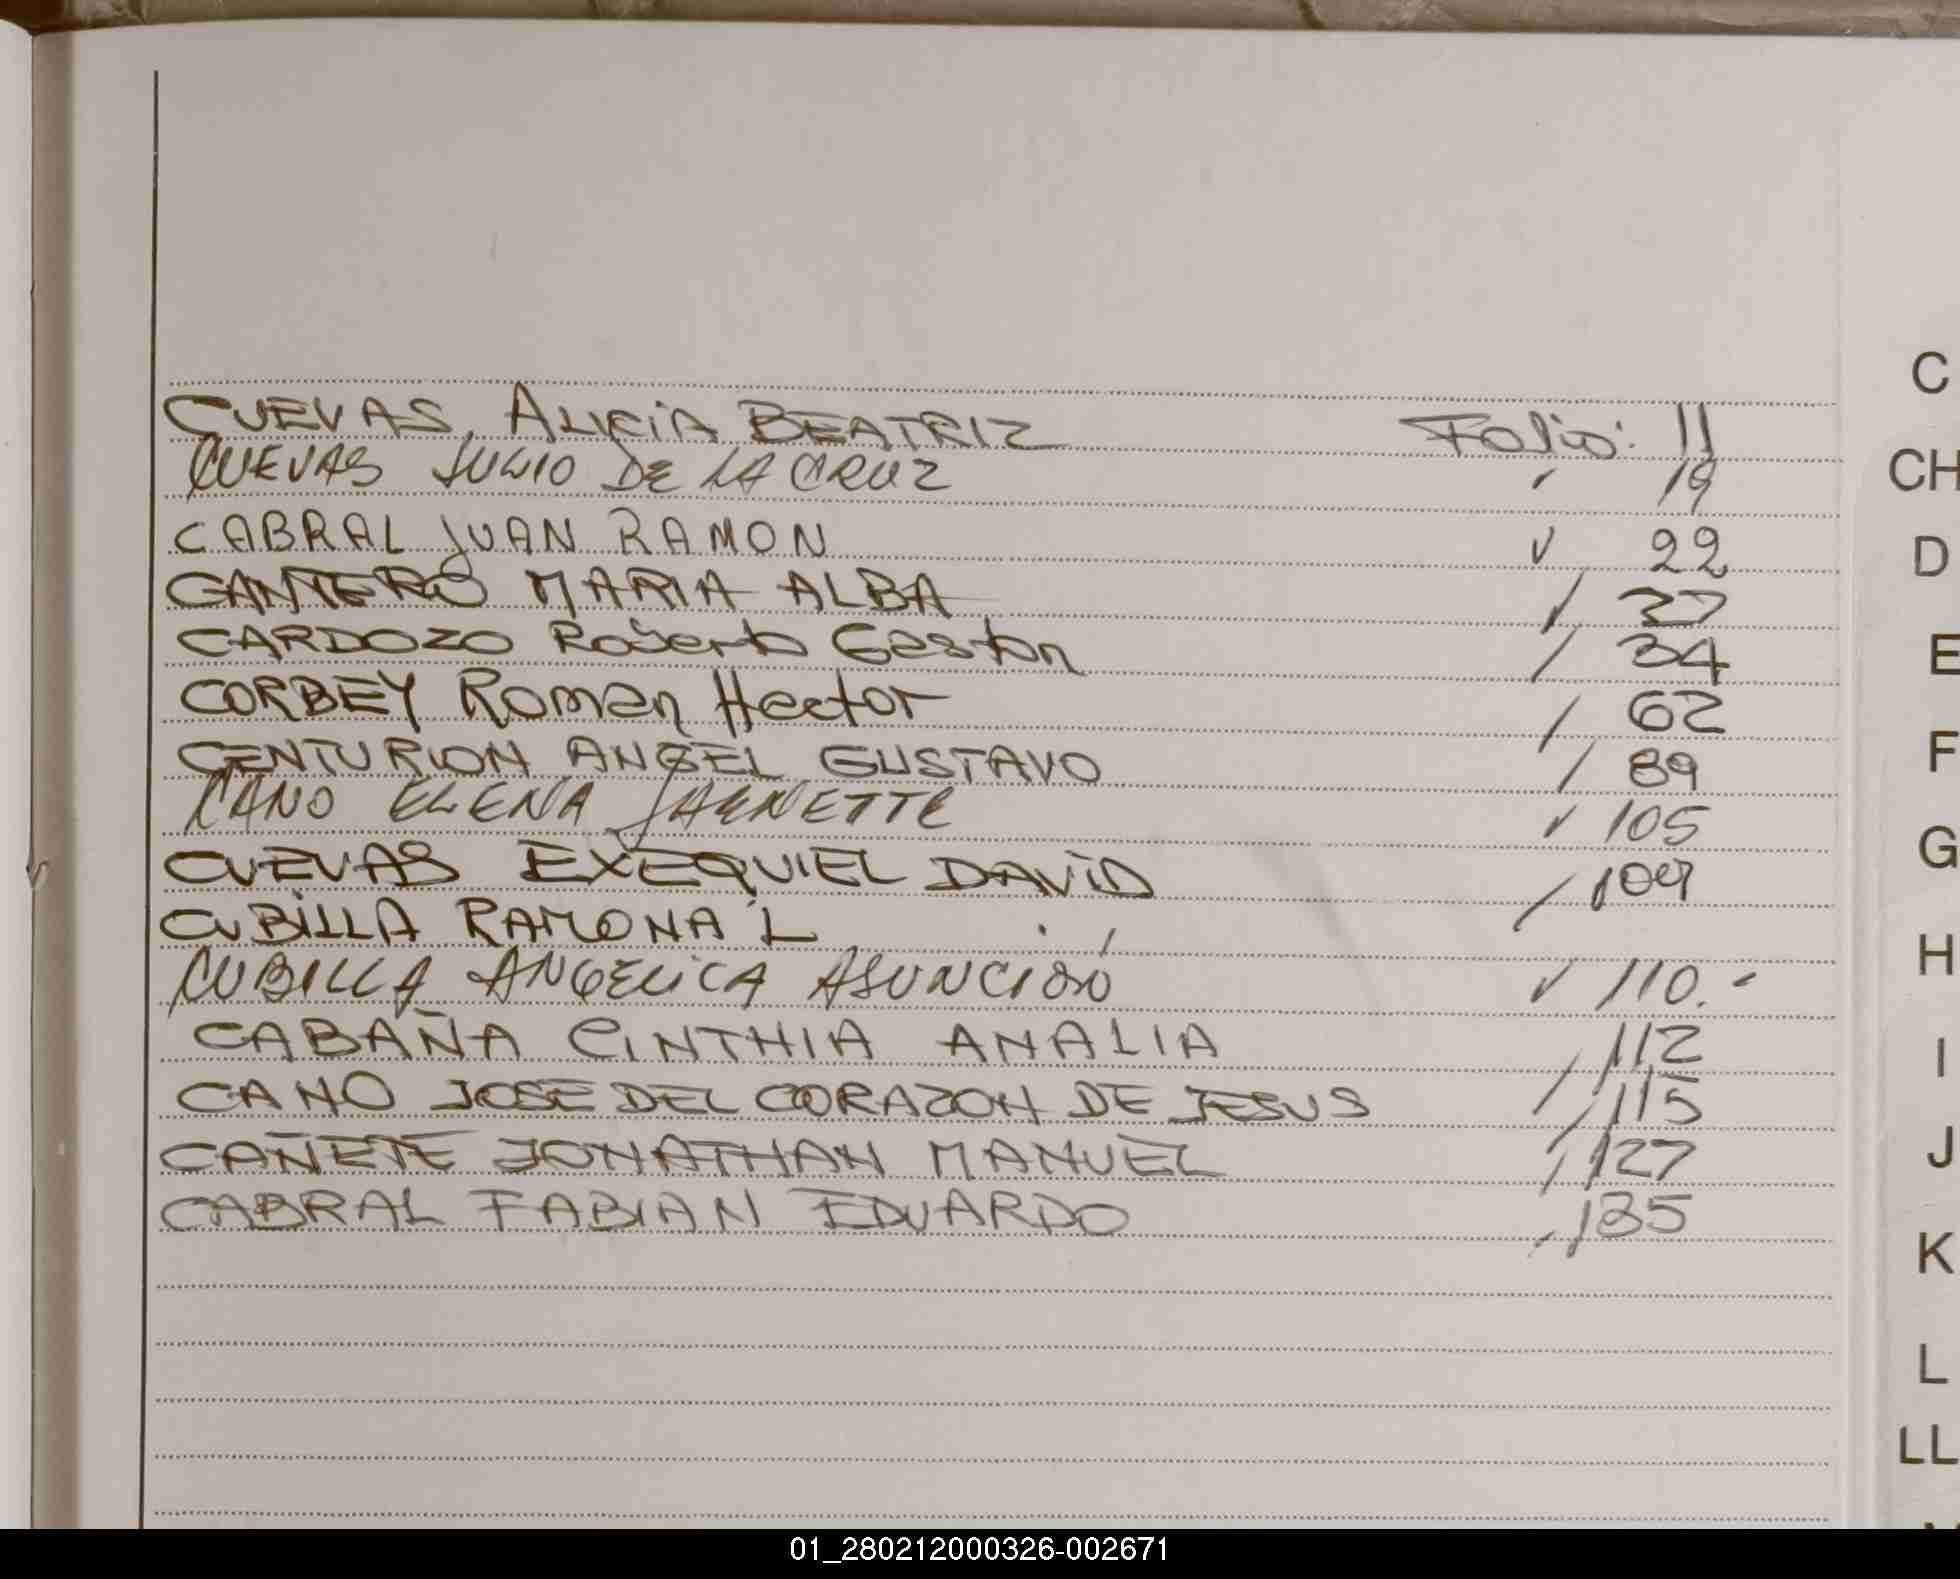 CUEVAS, ALICIA BEATRIZ Folio: 11
CUEVAS JULIO DE LA CRUZ ✓ 19
CABRAL JUAN RAMON ✓ 22
CANTERO MARIA ALBA ✓
CARDOZO Roberto Gaston / 34
CORBEY Roman Hector / 62
CENTURION ANGEL GUSTAVO / 89
CANO ELENA JAENETTE ✓ 105
CUEVAS EXEQUIEL DAVID / 109
CUBILLA RAMONA L
CUBILLA ANGELICA ASUNCIÓN ✓ 110.-
CABAÑA CINTHIA ANALIA / 112
CANO JOSE DEL CORAZON DE JESUS / 115
CAÑETE JONATHAN MANUEL / 127
CABRAL FABIAN EDUARDO / 135
C
CH
D
E
F
G
H
I
J
K
L
LL
01_280212000326-002671